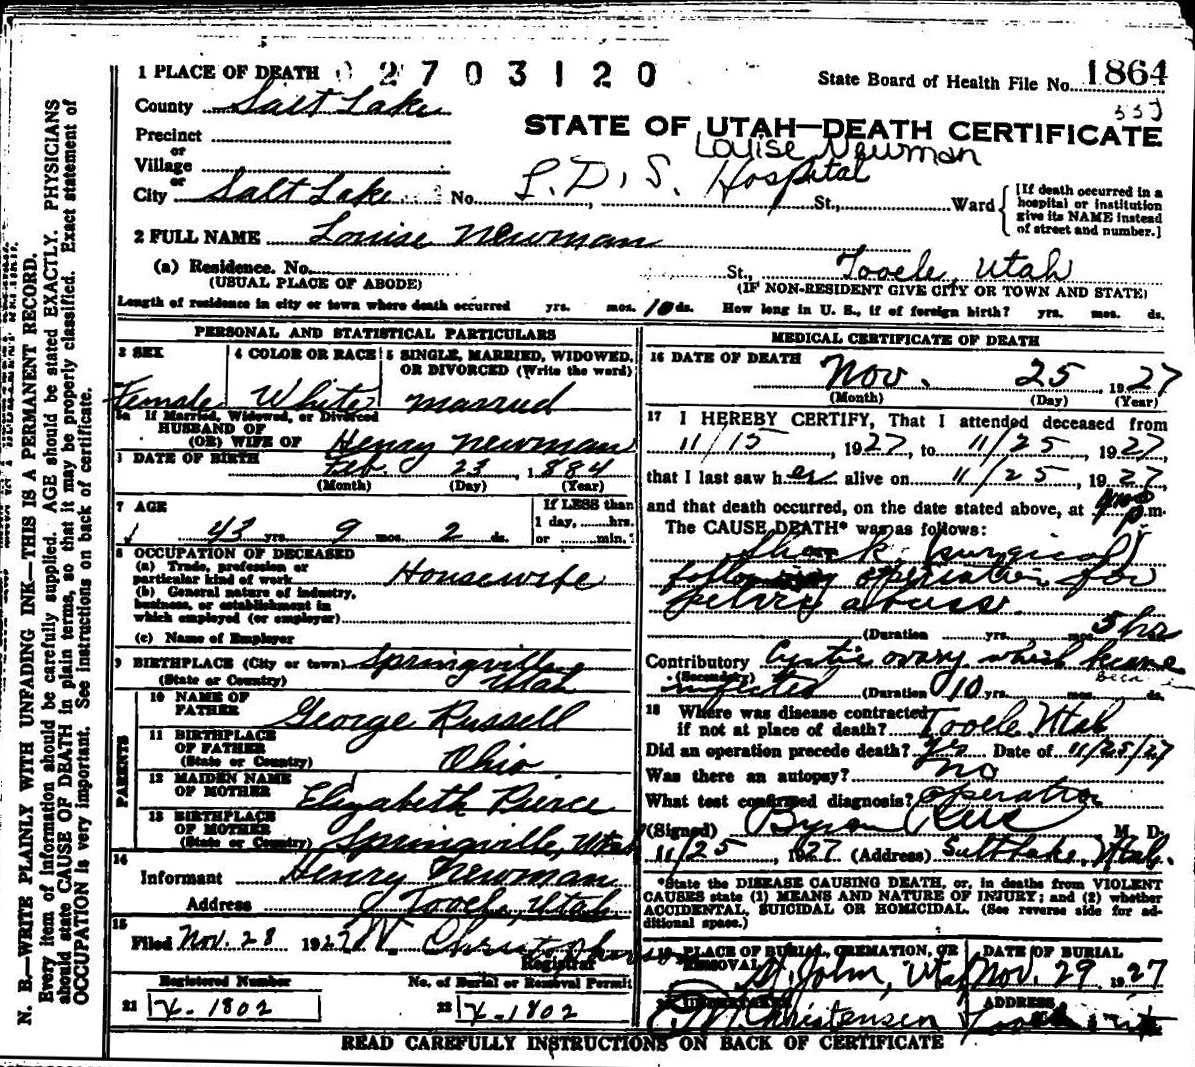 1 PLACE OF DEATH 02703120
State Board of Health File No. 1864
County Salt Lake
STATE OF UTAH—DEATH CERTIFICATE
Precinct
Louise Newman
or
Village
or
City Salt Lake No. L. D. S. Hospital St., Ward
[If death occurred in a
hospital or institution
give its NAME instead
of street and number.]
2 FULL NAME Louise Newman
(a) Residence. No. St., Tooele, Utah
(USUAL PLACE OF ABODE) (IF NON-RESIDENT GIVE CITY OR TOWN AND STATE)
Length of residence in city or town where death occurred yrs. mos. 10 ds. How long in U. S., if of foreign birth? yrs. mos. ds.
PERSONAL AND STATISTICAL PARTICULARS
3 SEX 4 COLOR OR RACE 5 SINGLE, MARRIED, WIDOWED,
OR DIVORCED (Write the word)
Female White Married
5a If Married, Widowed, or Divorced
HUSBAND OF
(OR) WIFE OF Henry Newman
DATE OF BIRTH Feb. 23, 1884
(Month) (Day) (Year)
7 AGE If LESS than
1 day, hrs.
43 yrs. 9 mos. 2 ds. or min.
8 OCCUPATION OF DECEASED
(a) Trade, profession or
particular kind of work Housewife
(b) General nature of industry,
business, or establishment in
which employed (or employer)
(c) Name of Employer
9 BIRTHPLACE (City or town) Springville
(State or Country) Utah
PARENTS
10 NAME OF
FATHER George Russell
11 BIRTHPLACE
OF FATHER
(State or Country) Ohio
12 MAIDEN NAME
OF MOTHER Elizabeth Pierce
13 BIRTHPLACE
OF MOTHER
(State or Country) Springville, Utah
14
Informant Henry Newman
Address Tooele, Utah
15
Filed Nov. 28 1927 Christopherson
Registrar
Registered Number No. of Burial or Removal Permit
21 X-1802 22 X-1802
MEDICAL CERTIFICATE OF DEATH
16 DATE OF DEATH Nov. 25, 1927
(Month) (Day) (Year)
17 I HEREBY CERTIFY, That I attended deceased from
11/15, 1927, to 11/25, 1927,
that I last saw her alive on 11/25, 1927,
and that death occurred, on the date stated above, at p.m.
The CAUSE DEATH* was as follows:
Shock, (surgical)
following operation for
pelvic abscess.
(Duration yrs. mos. 5 hrs
Contributory Cystic ovary which became
(Secondary) infected (Duration 10 yrs. mos. ds.
18 Where was disease contracted
if not at place of death? Tooele Utah
Did an operation precede death? Yes Date of 11/25/27
Was there an autopsy? no
What test confirmed diagnosis? operation
(Signed) Byron Rees M. D.
11/25, 1927 (Address) Salt Lake, Utah.
*State the DISEASE CAUSING DEATH, or, in deaths from VIOLENT
CAUSES state (1) MEANS AND NATURE OF INJURY; and (2) whether
ACCIDENTAL, SUICIDAL OR HOMICIDAL. (See reverse side for ad-
ditional space.)
19 PLACE OF BURIAL, CREMATION, OR DATE OF BURIAL
REMOVAL St. John, Utah Nov. 29 1927
ADDRESS
Christensen Tooele
READ CAREFULLY INSTRUCTIONS ON BACK OF CERTIFICATE
N. B.—WRITE PLAINLY WITH UNFADING INK—THIS IS A PERMANENT RECORD.
Every item of information should be carefully supplied. AGE should be stated EXACTLY. PHYSICIANS
should state CAUSE OF DEATH in plain terms, so that it may be properly classified. Exact statement of
OCCUPATION is very important. See instructions on back of certificate.